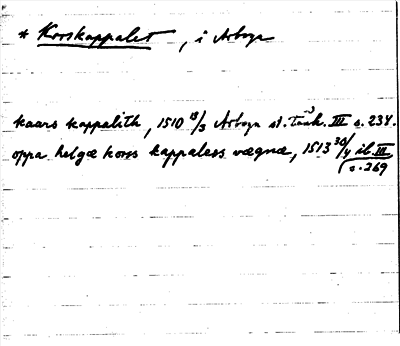 * Korskappalet, i Arboga
kaars kappalith, 1510 13/3 Arboga st. tänk. III s. 234.
oppa helgæ korss kappaless wægnæ, 1513 30/4 ib. III
s. 269